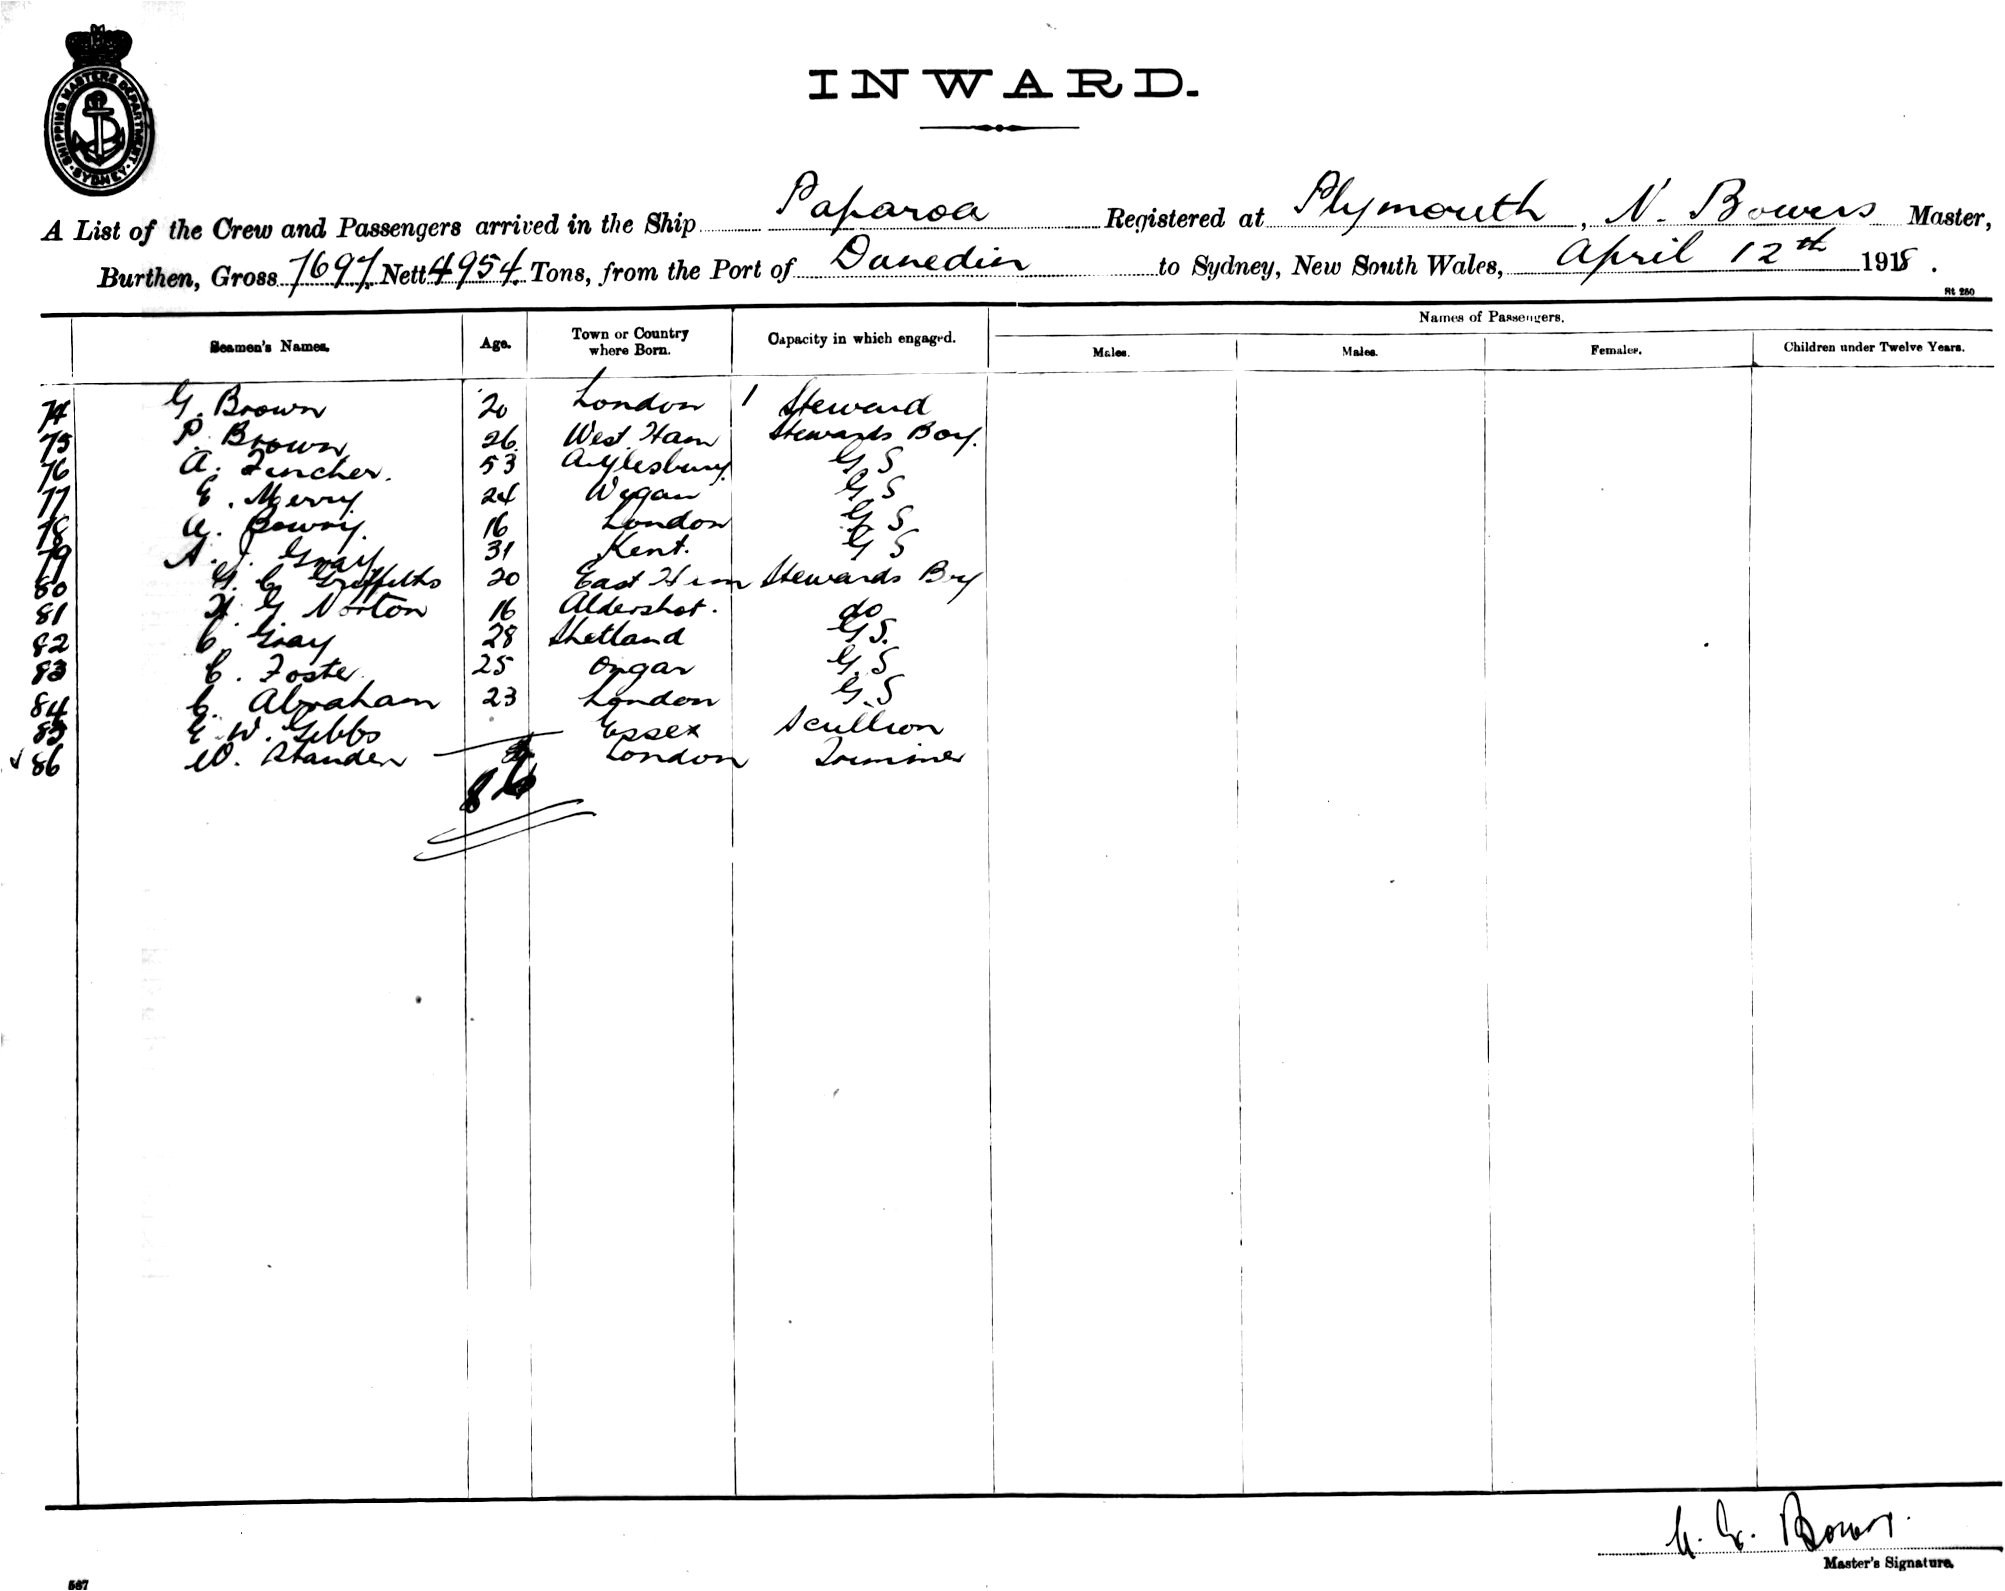 SHIPPING MASTERS DEPARTMENT. SYDNEY
INWARD.
A List of the Crew and Passengers arrived in the Ship Paparoa Registered at Plymouth, N. Bowers Master,
Burthen, Gross 7697 Nett 4954 Tons, from the Port of Dunedin to Sydney, New South Wales, April 12th 1918.
St 280
Names of Passengers.
Seamen's Names. Age. Town or Country where Born. Capacity in which engaged. Males. Males. Females. Children under Twelve Years.
74 G. Brown 20 London 1 Steward
75 P. Brown 26 West Ham Stewards Boy.
76 A. Fincher. 53 Aylesbury G S
77 E. Merry 24 Wigan G S
78 A. 16 London G S
79 A. J. Gray 31 Kent. G S
80 G. C. Griffiths 20 East Ham Stewards Boy
81 H. G. Norton 16 Aldershot. do
82 C. Gray 28 Shetland G S.
83 C. Foster 25 Ongar G.S
84 C. Abraham 23 London G.S
85 E. W. Gibbs Essex Scullion
86 W. Standen London Trimmer
86
Bowers.
Master's Signature.
567